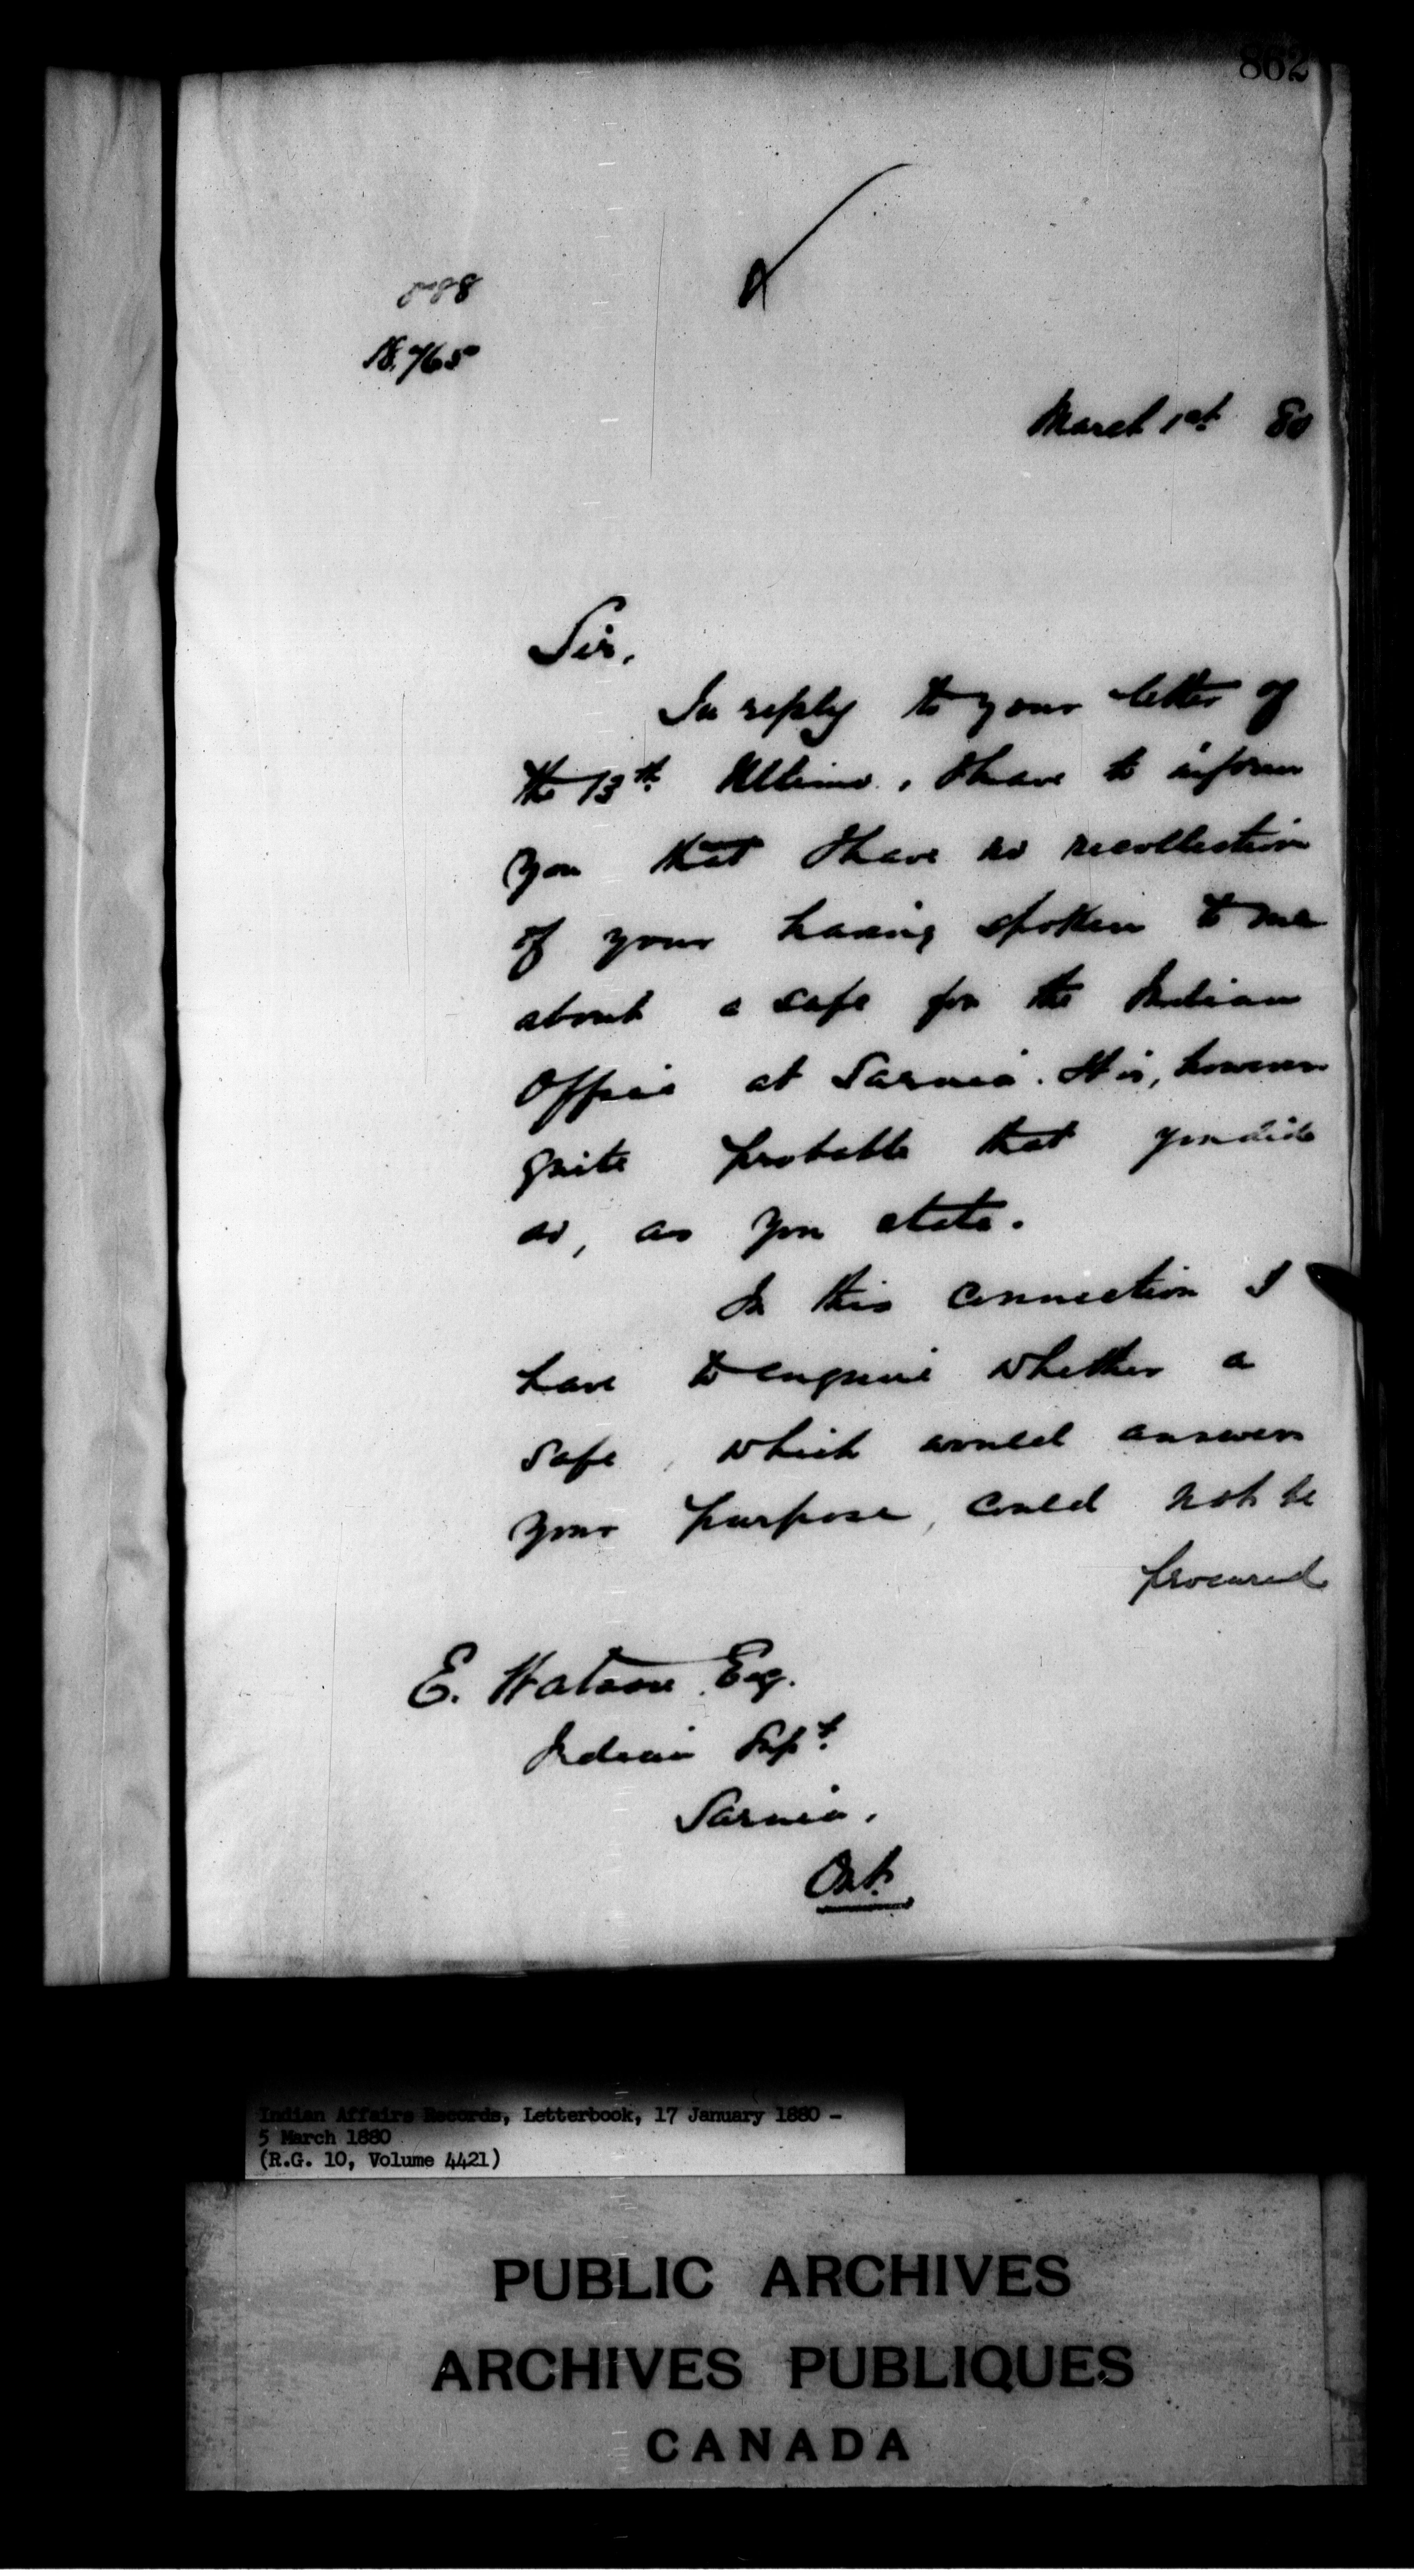 862
18,765
March 1st. 80
Sir,
In reply to your letter of
the 13th. Ultimo, I have to inform
you that I have no recollection
of your having spoken to me
about a safe for the Indian
Office at Sarnia. It is, however
quite probable that you did
so, as you state.
In this connection I
have to enquire whether a
safe, which would answer
your purpose, could not be
procured
E. Watson Esq.
Indian Supt.
Sarnia,
Ont.
Indian Affairs Records, Letterbook, 17 January 1880 -
5 March 1880
(R.G. 10, Volume 4421)
PUBLIC ARCHIVES
ARCHIVES PUBLIQUES
CANADA